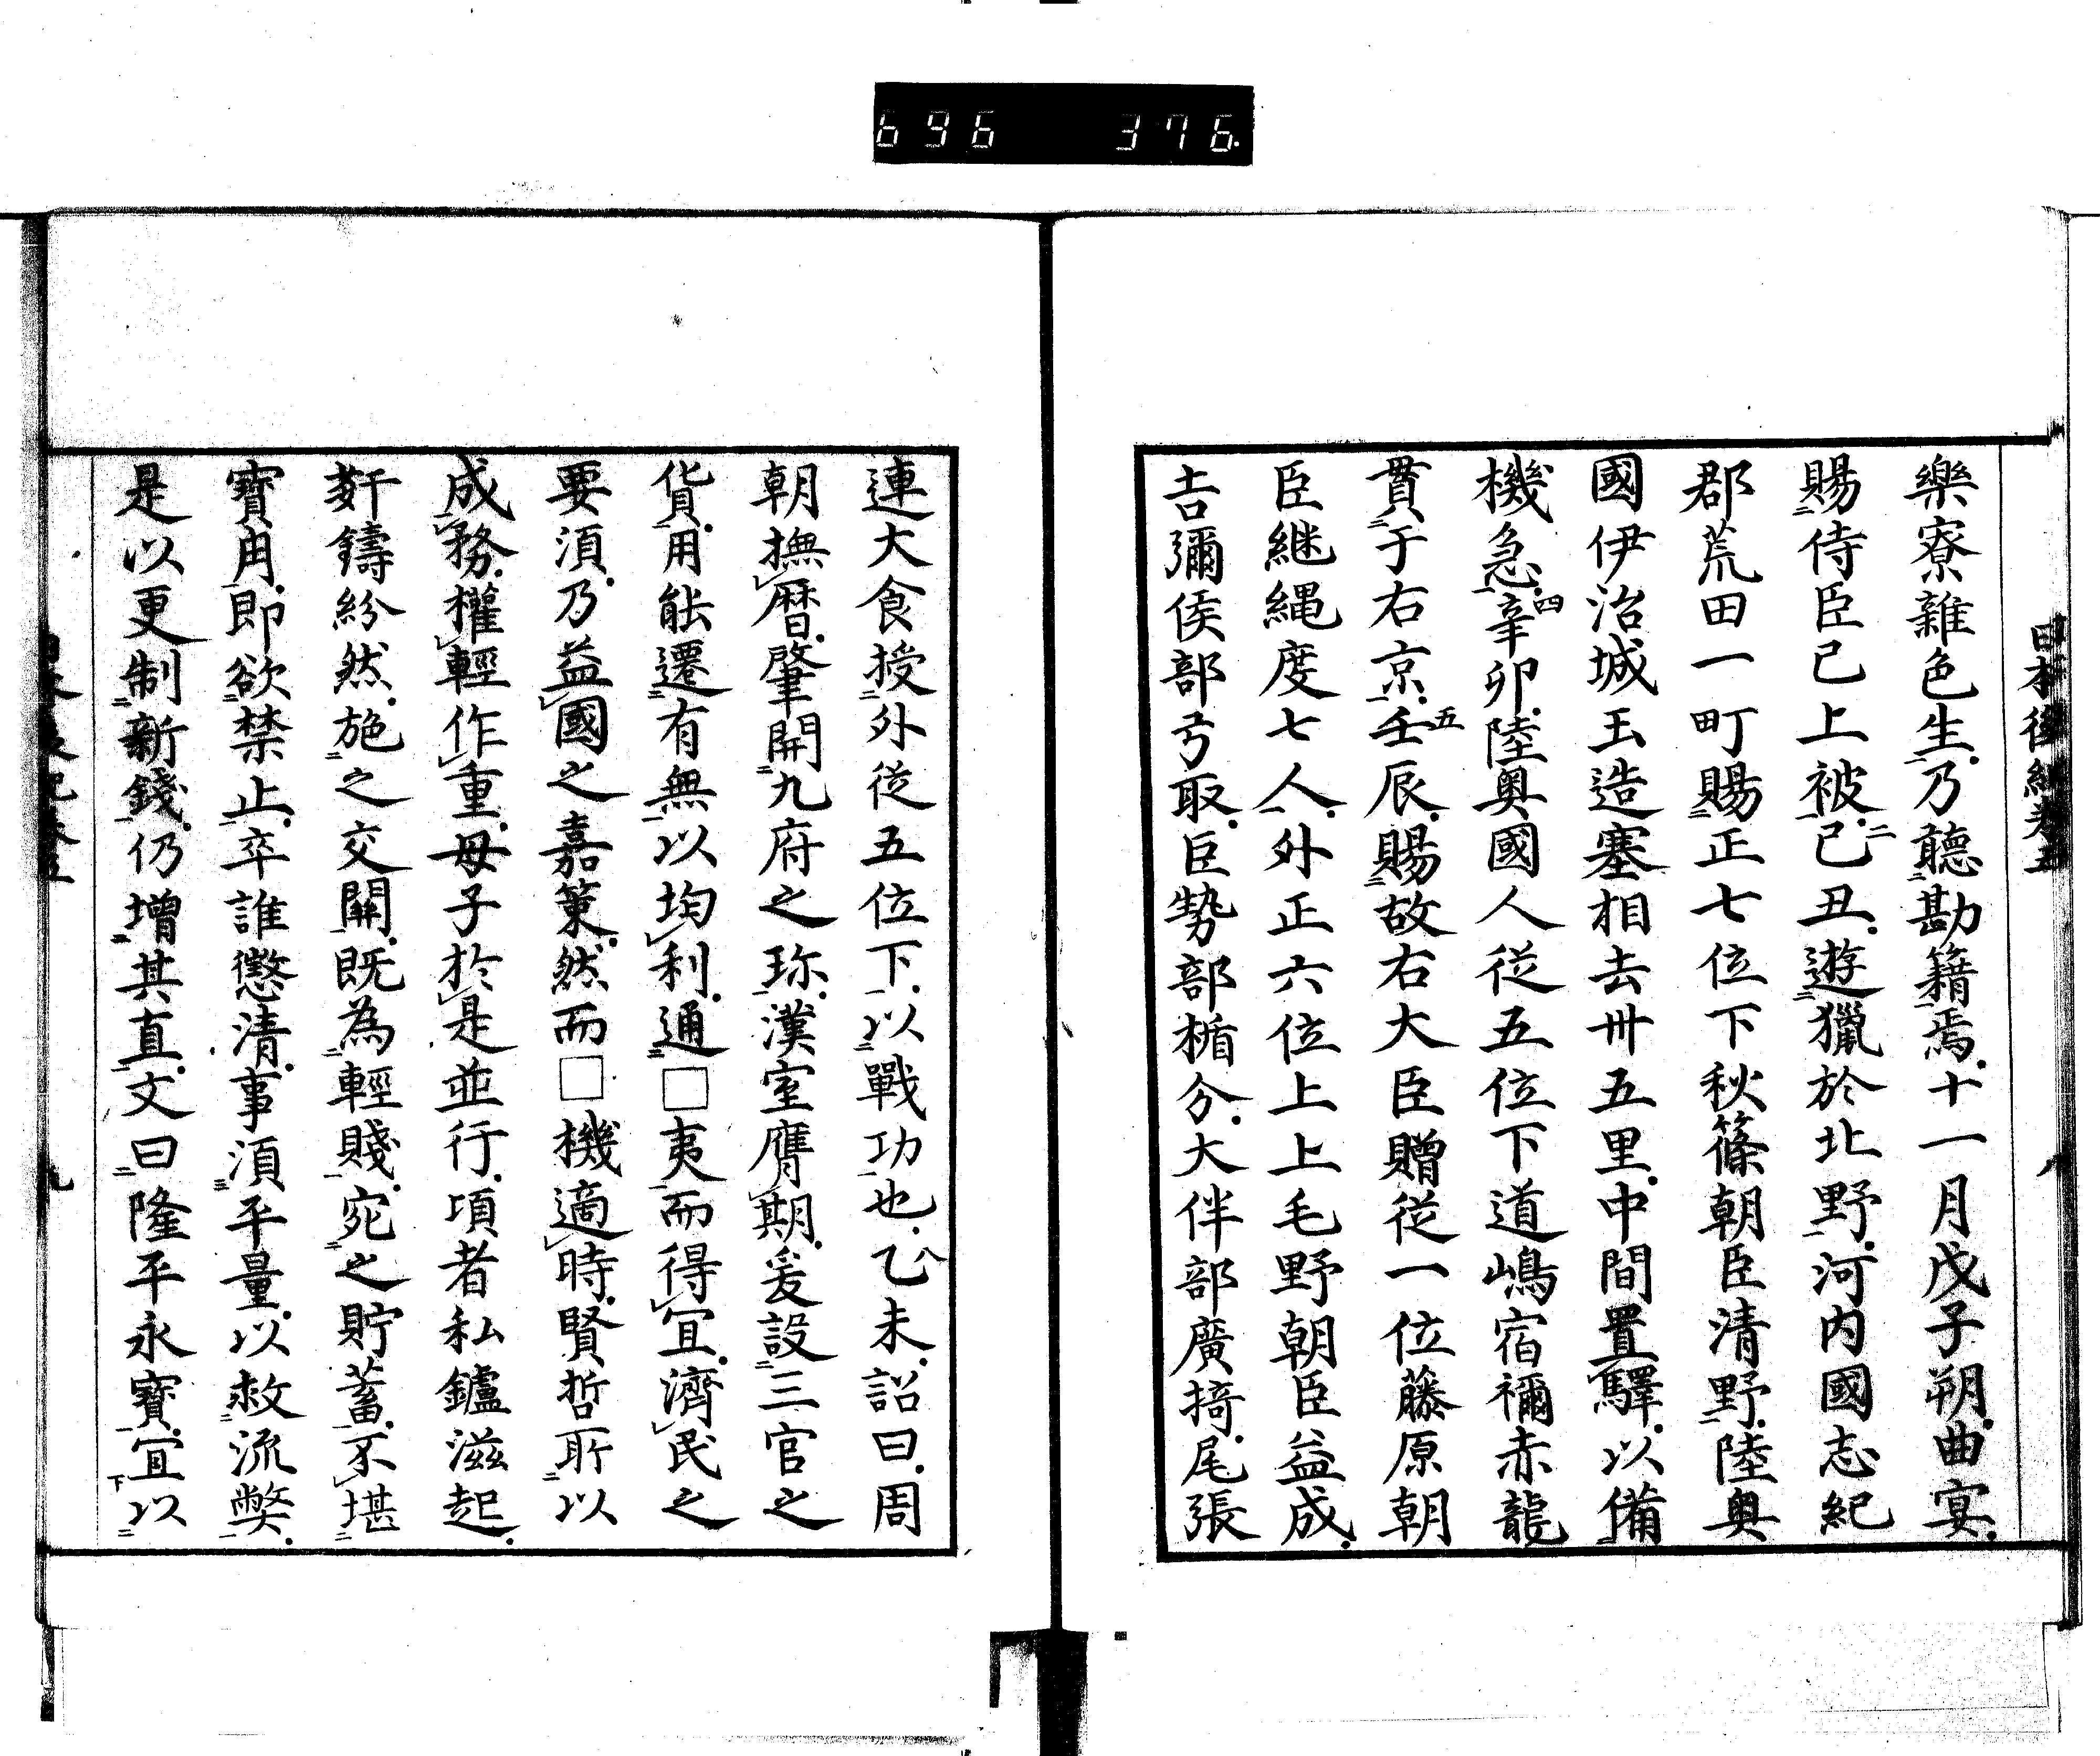 696 376.
日本後紀卷五 八
樂寮雜色生乃聽勘籍焉十一月戊子朔曲宴
賜侍臣已上被己丑遊獵於北野河内國志紀
郡荒田一町賜正七位下秋篠朝臣清野陸奥
國伊治城玉造塞相去卅五里中間置驛以備
機急辛卯陸奥國人從五位下道嶋宿禰赤龍
貫于右京壬辰賜故右大臣贈從一位藤原朝
臣継縄度七人外正六位上上毛野朝臣益成
吉彌侯部弓取巨勢部楯分大伴部廣掎尾張
連大食授外從五位下以戰功也乙未詔曰周
朝撫暦肇開九府之珎漢室膺期爰設三官之
貨用能遷有無以均利通□夷而得冝濟民之
要湏乃益國之嘉策然而□機適時賢哲所以
成務權輕作重母子於是並行項者私鑪滋起
姧鑄紛然施之交關既為輕賤宛之貯蓄不堪
寶用即欲禁止卒誰懲清事湏平量以救流弊
是以更制新錢仍增其直文曰隆平永寳冝以
九